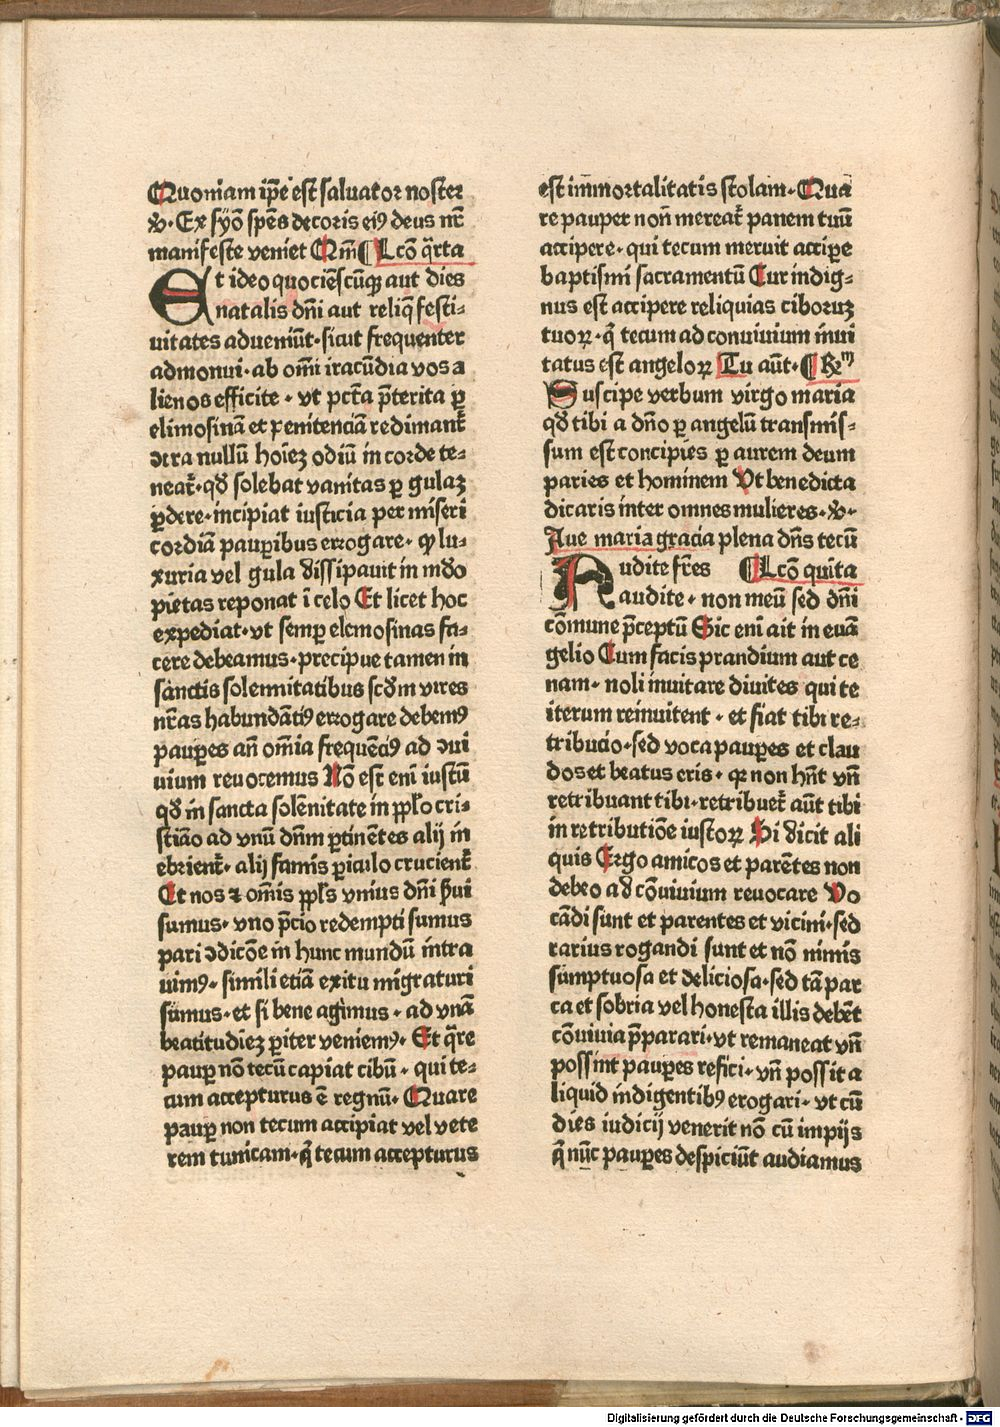 Quoniam ip̄e est saluator noster
℣. Ex syō spēs decoris eiꝰ deus nr̄
manifeste veniet Qm̄ ¶ Lcō q̄rta
Et ideo quociēscūqꝫ aut dies
natalis dn̄i aut reliq̄ festi⸗
uitates adueniūt. sicut frequenter
admonui. ab om̄i iracūdia vos a
lienos efficite . vt pctā p̄terita ꝑ
elimosinā et penitenciā redimant᷑
ꝯtra nullū hoīeꝫ odiū in corde te⸗
neat᷑. qđ solebat vanitas ꝑ gulaꝫ
ꝑdere. incipiat iusticia per miseri
cordiā pauꝑibus errogare. qꝫ lu⸗
xuria vel gula dissipauit in mūdo
pietas reponat ī celo Et licet hoc
expediat. vt semꝑ elemosinas fa⸗
cere debeamus. precipue tamen in
sanctis solennitatibus scđm vires
nr̄as habundātiꝰ errogare debemꝰ
pauꝑes an̄ om̄ia frequēciꝰ ad ꝯui
uium reuocemus Nō est eni iustū
qđ in sancta solēnitate in pp̄lo cri⸗
stiāo ad vnū dn̄m ꝑtinētes alij in
ebrient᷑. alij famis ꝑiculo crucient᷑
Et nos ⁊ om̄is pp̄ls vnius dn̄i ẜui
sumus. vno p̄cio redempti sumus
pari ꝯdicōe in hunc mundū intra
uimꝰ. simili etiā exitu migraturi
sumus. et si bene agimus . ad vnā
beatitudieꝫ ꝑiter veniemꝰ. Et q̄re
pauꝑ nō tecū capiat cibū . qui te⸗
cum accepturus ē regnū. Quare
pauꝑ non tecum accipiat vel vete
rem tunicam. q̄ tecum accepturus
est immortalitatis stolam. Qua
re pauper non̄ mereat᷑ panem tuū
accipere. qui tecum meruit accipe
baptismi sacramentū Cur indig⸗
nus est accipere reliquias ciboruꝫ
tuoꝝ. q̄ tecum ad conuiuium inui
tatus est angeloꝝ Tu aūt. ¶ R̄m
Suscipe verbum virgo maria
qđ tibi a dn̄o ꝑ angelū transmis⸗
sum est concipies ꝑ aurem deum
paries et hominem Vt benedicta
dicaris inter omnes mulieres. ℣.
Aue maria gracia plena dn̄s tecū
Audite fr̄es ¶ Lcō quita
audite. non meū sed dn̄i
cōmune p̄ceptū Sic eni ait in euā
gelio Cum facis prandium aut ce
nam. noli inuitare diuites qui te
iterum reinuitent . et fiat tibi re⸗
tribucio. sed voca pauꝑes et clau
dos et beatus eris. qꝛ non hn̄t vn̄
retribuant tibi. retribuet᷑ aūt tibi
in retributiōe iustoꝝ Si dicit ali
quis Ergo amicos et parētes non
debeo ad cōuiuium reuocare Vo
cādi sunt et parentes et vicini. sed
rarius rogandi sunt et nō nimis
sumptuosa et deliciosa. sed tā par
ca et sobria vel honesta illis debēt
cōuiuia p̄parari. vt remaneat vn̄
possint pauꝑes refici. vn̄ possit a
liquid indigentibꝰ erogari. vt cū
dies iudicij venerit nō cū impijs
q̄ nūc pauꝑes despiciūt audiamus
Digitalisierung gefördert durch die Deutsche Forschungsgemeinschaft - DFG